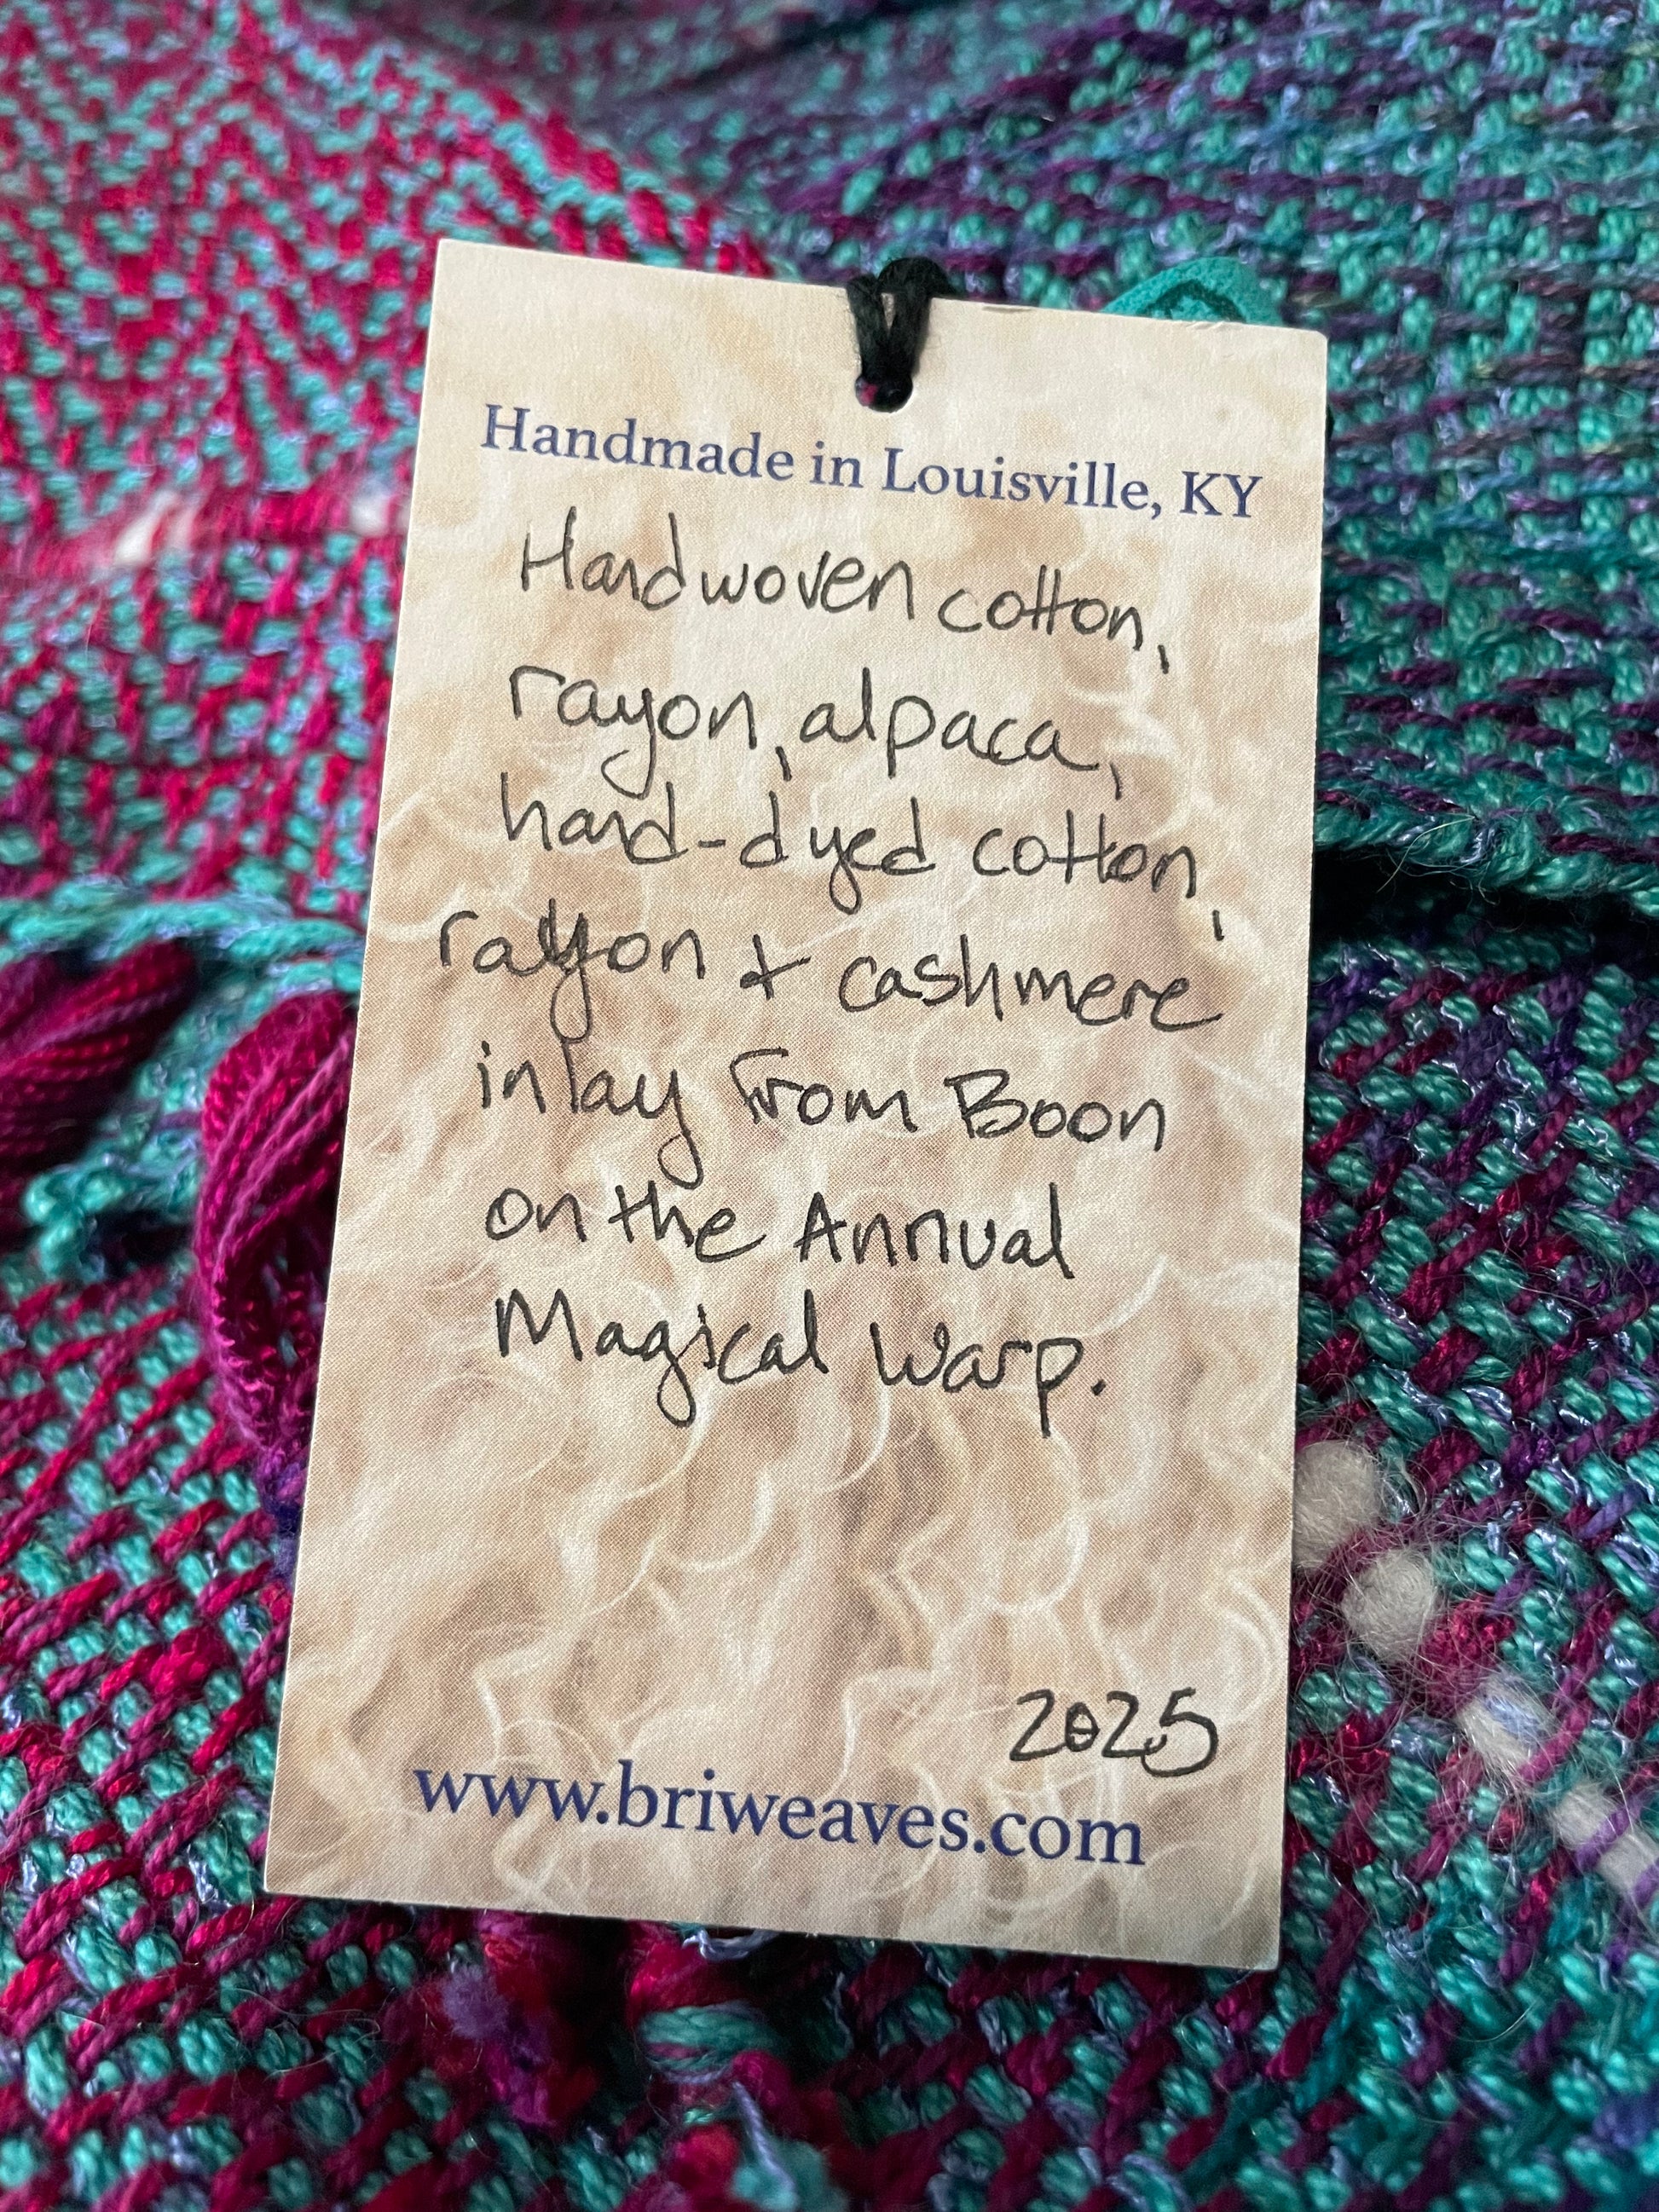 Handmade in Louisville, KY
Handwoven cotton,
rayon, alpaca,
hand-dyed cotton,
rayon + cashmere
inlay from Boon
on the Annual
Magical Warp.
2025
www.briweaves.com